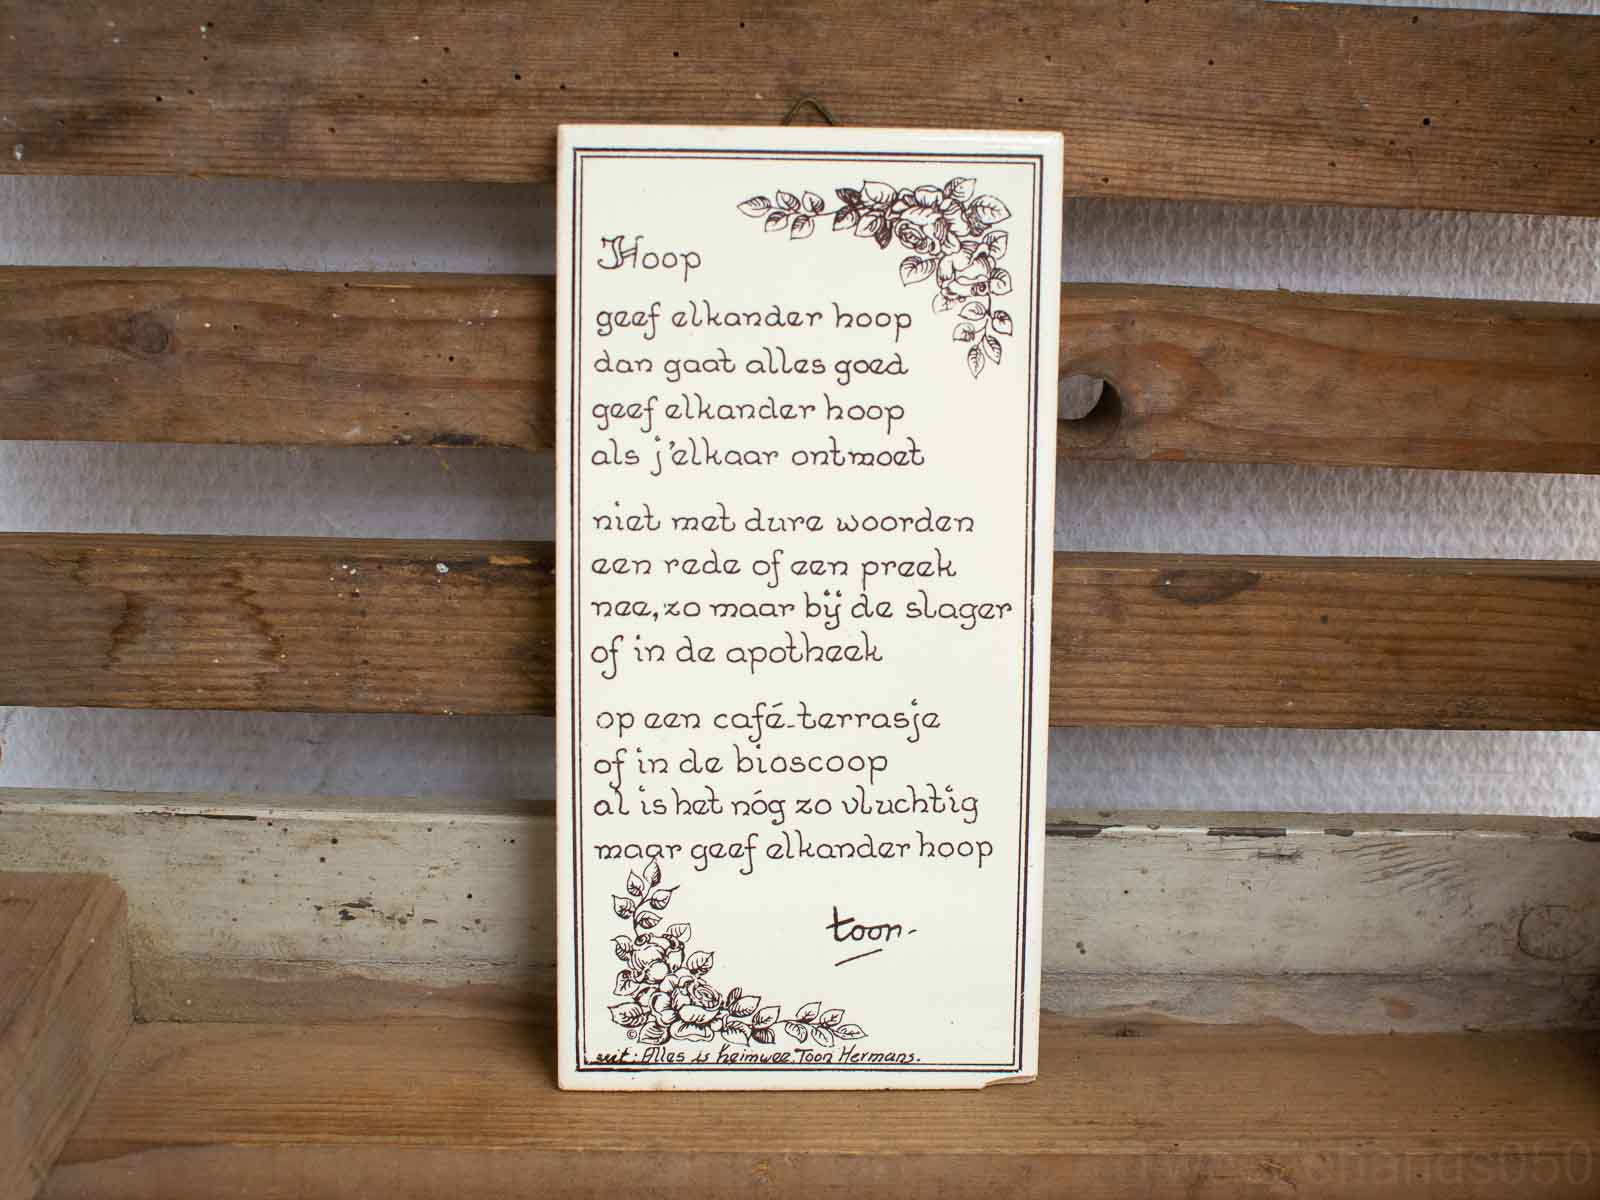 Hoop
geef elkander hoop
dan gaat alles goed
geef elkander hoop
als j'elkaar ontmoet
niet met dure woorden
een rede of een preek
nee, zo maar bij de slager
of in de apotheek
op een café-terrasje
of in de bioscoop
al is het nóg zo vluchtig
maar geef elkander hoop
toon-
©
uit: Alles is heimwee. Toon Hermans.